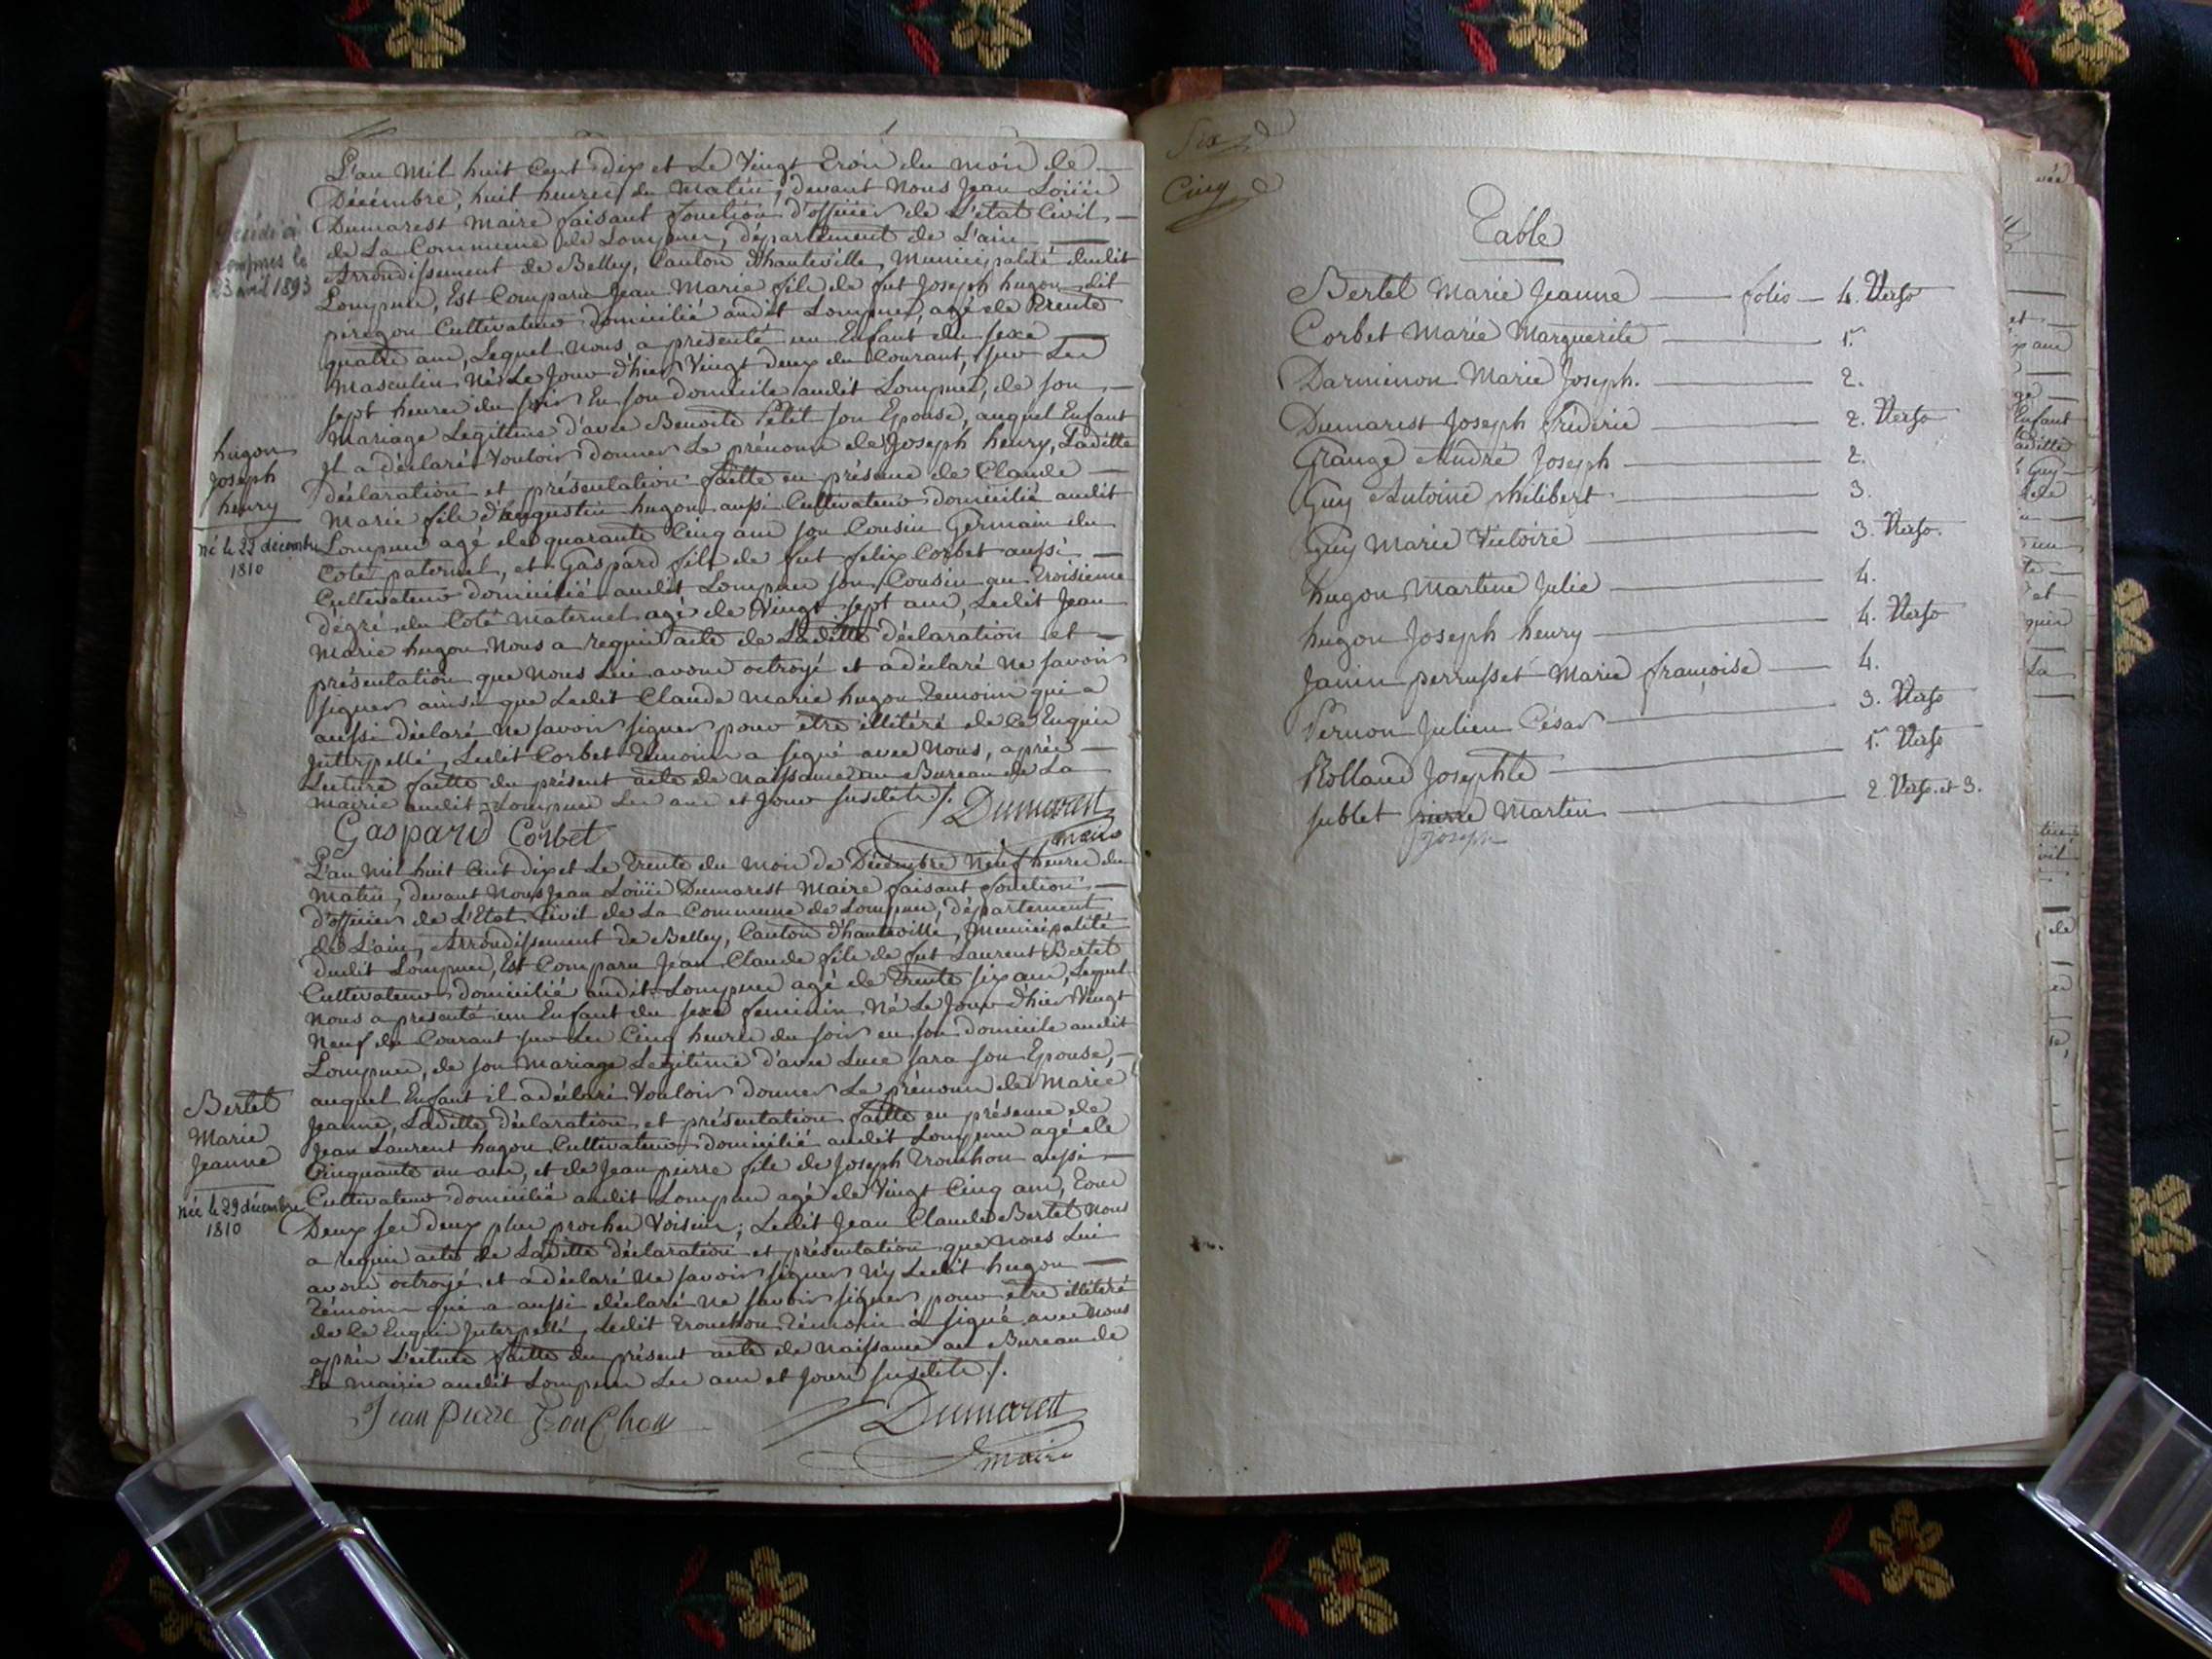 L'an Mil huit Cent Dix et Le Vingt Trois du mois de
Décémbre, huit heures du Matin, devant Nous Jean Loüis
Dumarest Maire faisant fonction d'officier de L'état Civil
de La Commune de Lompnes, département de L'ain
Arrondissement de Belley, Canton d'hauteville, Municipalité dudit
Lompnes, Est Comparu Jean Marie fils de fut Joseph hugon dit
peregon Cultivateur domicilié audit Lompnes, agé de Trente
quatre ans, Lequel Nous a présenté un Enfant du sexe
Masculin, Né Le Jour d'hier Vingt deux du Courant, sur Les
sept heures du soir En son domicile audit Lompnes, de son
Mariage Légitime d'avec Benoite Petit son Epouse, auquel Enfant
Il a déclaré Vouloir donner Le prénoms de Joseph henry, Laditte
déclaration et présentation faitte en présence de Claude
Marie fils d'augustin hugon aussi Cultivateur domicilié audit
Lompnes agé de quarante Cinq ans son Cousin Germain du
Coté paternel, et Gaspard fils de fut felix Corbet aussi
Cultivateur domicilié audit Lompnes son Cousin au Troisieme
dégré du Coté Maternel agé de Vingt sept ans, Ledit Jean
Marie hugon Nous a requis acte de Laditte déclaration et
présentation que Nous Lui avons octroyé et a déclaré Ne savoir
signer ainsi que Ledit Claude Marie hugon Temoins qui a
aussi déclaré Ne savoir signer pour être illitéré de Ce Enquis
Interpellé, Ledit Corbet Temoins a signé avec Nous, après
Lecture faitte du présent acte de Naissance au Bureau de La
Mairie audit Lompnes Les ans et Jour susdits /.
Dumarest
maire
Gaspard Corbet
Décédé à
Lompnes le
23 avril 1893
hugon
Joseph
henry
né le 22 décembre
1810
L'an Mil huit Cent dix et Le Trente du Mois de Décémbre Neuf heures du
Matin, devant Nous Jean Loüis Dumarest Maire faisant fonction
d'officier de L'Etat Civil de La Commune de Lompnes, département
de L'ain, Arrondissement de Belley, Canton d'hauteville, Municipalité
dudit Lompnes, Est Comparu Jean Claude fils de fut Laurent Bertet
Cultivateur domicilié audit Lompnes agé de Trente six ans, Lequel
Nous a présenté un Enfant du sexe feminin Né Le Jour d'hier Vingt
Neuf du Courant sur Les Cinq heures du soir en son domicile audit
Lompnes, de son Mariage Légitime d'avec Luce sara son Epouse,
auquel Enfant il a déclaré Vouloir donner Le prénoms de Marie
Jeanne, Laditte déclaration et présentation faitte en présence de
Jean Laurent hugon Cultivateur domicilié audit Lompnes agé de
Cinquante un ans, et de Jean pierre fils de Joseph Tronchon aussi
Cultivateur domicilié audit Lompnes agé de Vingt Cinq ans, Tous
Deux ses deux plus proches Voisins; Ledit Jean Claude Bertet Nous
a requis acte de Laditte déclaration et présentation que Nous Lui
avons octroyé et a déclaré Ne savoir signer Ny Ledit hugon
Témoins qui a aussi déclaré Ne savoir signer pour être illitéré
de Ce Enquis Interpellé, Ledit Tronchon Témoins à signé avec Nous
après Lecture faitte du présent acte de Naissance au Bureau de
La Mairie audit Lompnes Les ans et Jours susdits /.
Jean pierre Tronchon
Dumarest
maire
Bertet
Marie
Jeanne
née le 29 décembre
1810
Six
Cinq
Table
Bertet Marie Jeanne folio 4. Verso
Corbet Marie Marguerite 1er
Darminon Marie Joseph. 2.
Dumarest Joseph fréderic 2. Verso
Grange André Joseph 2.
Guy Antoine philibert 3.
Guy Marie Victoire 3. Verso.
hugon Martine Julie 4.
hugon Joseph henry 4. Verso
Janin perrusset Marie françoise 4.
Pernon Julien César 3. Verso
Rolland Josephte 1er Verso
sublet pierre Martin 2 Verso. et 3.
Joseph